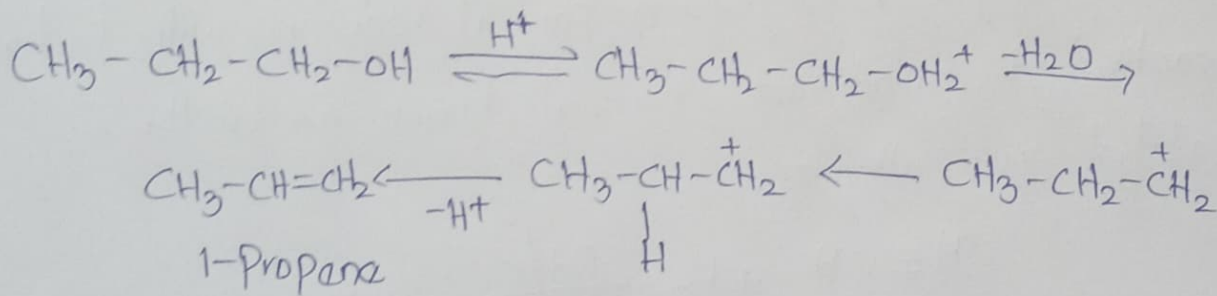 CH₃-CH₂-CH₂-OH ⇌[H⁺] CH₃-CH₂-CH₂-OH₂⁺ →[-H₂O]
CH₃-CH=CH₂ ←[-H⁺] CH₃-CH-C⁺H₂ ← CH₃-CH₂-C⁺H₂
H
1-Propane